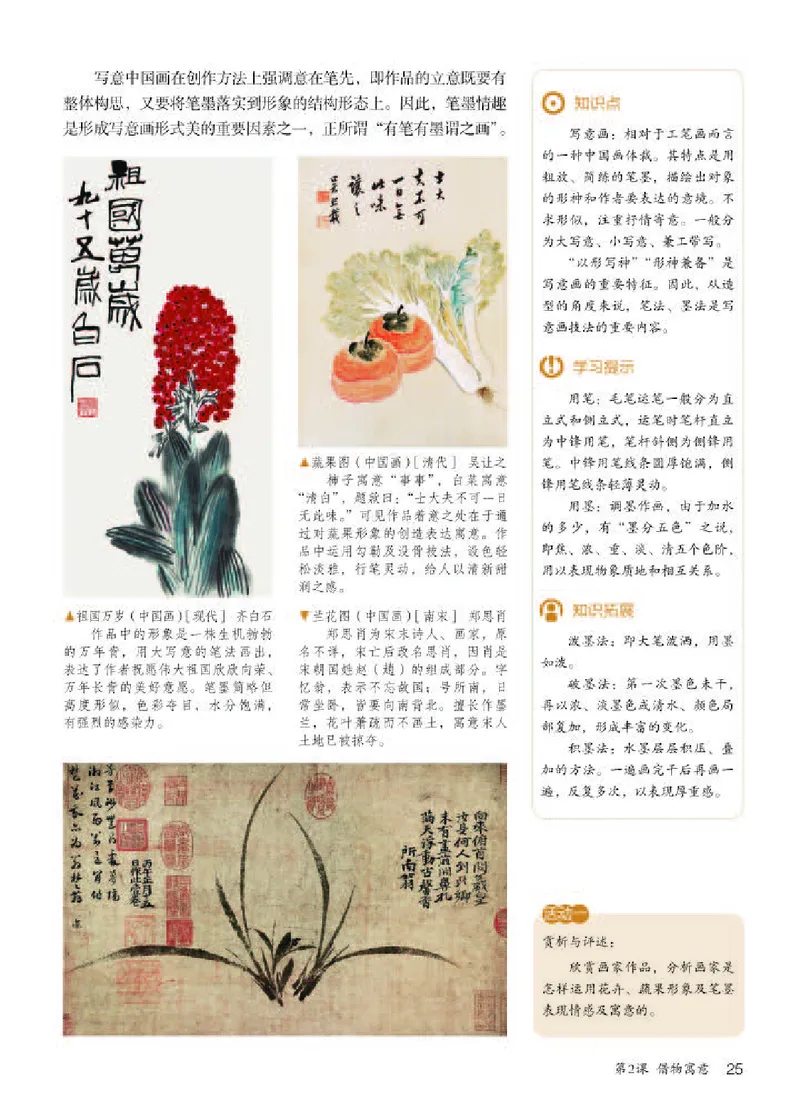 写意中国画在创作方法上强调意在笔先，即作品的立意既要有
整体构思，又要将笔墨落实到形象的结构形态上。因此，笔墨情趣
是形成写意画形式美的重要因素之一，正所谓“有笔有墨谓之画”。
祖國萬歲
九十五歲白石
士大
夫不可
一日無
此味
讓之
▲蔬果图（中国画）［清代］ 吴让之
柿子寓意“事事”，白菜寓意
“清白”，题款曰：“士大夫不可一日
无此味。”可见作品着意之处在于通
过对蔬果形象的创造表达寓意。作
品中运用勾勒及没骨技法，设色轻
松淡雅，行笔灵动，给人以清新甜
润之感。
▲祖国万岁（中国画）［现代］ 齐白石
作品中的形象是一株生机勃勃
的万年青，用大写意的笔法画出，
表达了作者祝愿伟大祖国欣欣向荣、
万年长青的美好意愿。笔墨简略但
高度形似，色彩夺目，水分饱满，
有强烈的感染力。
▼兰花图（中国画）［南宋］ 郑思肖
郑思肖为宋末诗人、画家，原
名不详，宋亡后改名思肖，因肖是
宋朝国姓赵（趙）的组成部分。字
忆翁，表示不忘故国；号所南，日
常坐卧，皆要向南背北。擅长作墨
兰，花叶萧疏而不画土，寓意宋人
土地已被掠夺。
向來俯首問羲皇
汝是何人到此鄉
未有畫前開鼻孔
滿天浮動古馨香
所南翁
丙午正月十五
日作此壹卷
知识点
写意画：相对于工笔画而言
的一种中国画体裁。其特点是用
粗放、简练的笔墨，描绘出对象
的形神和作者要表达的意境。不
求形似，注重抒情寄意。一般分
为大写意、小写意、兼工带写。
“以形写神”“形神兼备”是
写意画的重要特征。因此，从造
型的角度来说，笔法、墨法是写
意画技法的重要内容。
学习提示
用笔：毛笔运笔一般分为直
立式和侧立式，运笔时笔杆直立
为中锋用笔，笔杆斜侧为侧锋用
笔。中锋用笔线条圆厚饱满，侧
锋用笔线条轻薄灵动。
用墨：调墨作画，由于加水
的多少，有“墨分五色”之说，
即焦、浓、重、淡、清五个色阶，
用以表现物象质地和相互关系。
知识拓展
泼墨法：即大笔泼洒，用墨
如泼。
破墨法：第一次墨色未干，
再以浓、淡墨色或清水、颜色局
部复加，形成丰富的变化。
积墨法：水墨层层积压、叠
加的方法。一遍画完干后再画一
遍，反复多次，以表现厚重感。
活动一
赏析与评述：
欣赏画家作品，分析画家是
怎样运用花卉、蔬果形象及笔墨
表现情感及寓意的。
第2课 借物寓意 25